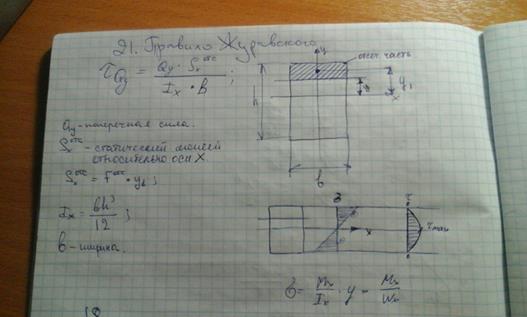 21. Правило Журавского
τQy = Qy · Sx^отс / Ix · b ;
отсеч часть
y
h
y
y1
x
b
Qy - поперечная сила.
Sx^отс - статический момент
относительно оси X.
Sx^отс = F^отс · y1 ;
Ix = bh³ / 12 ;
b - ширина.
σ
τ
x
τ max
σ = Mx / Ix · y = Mx / Wx
18